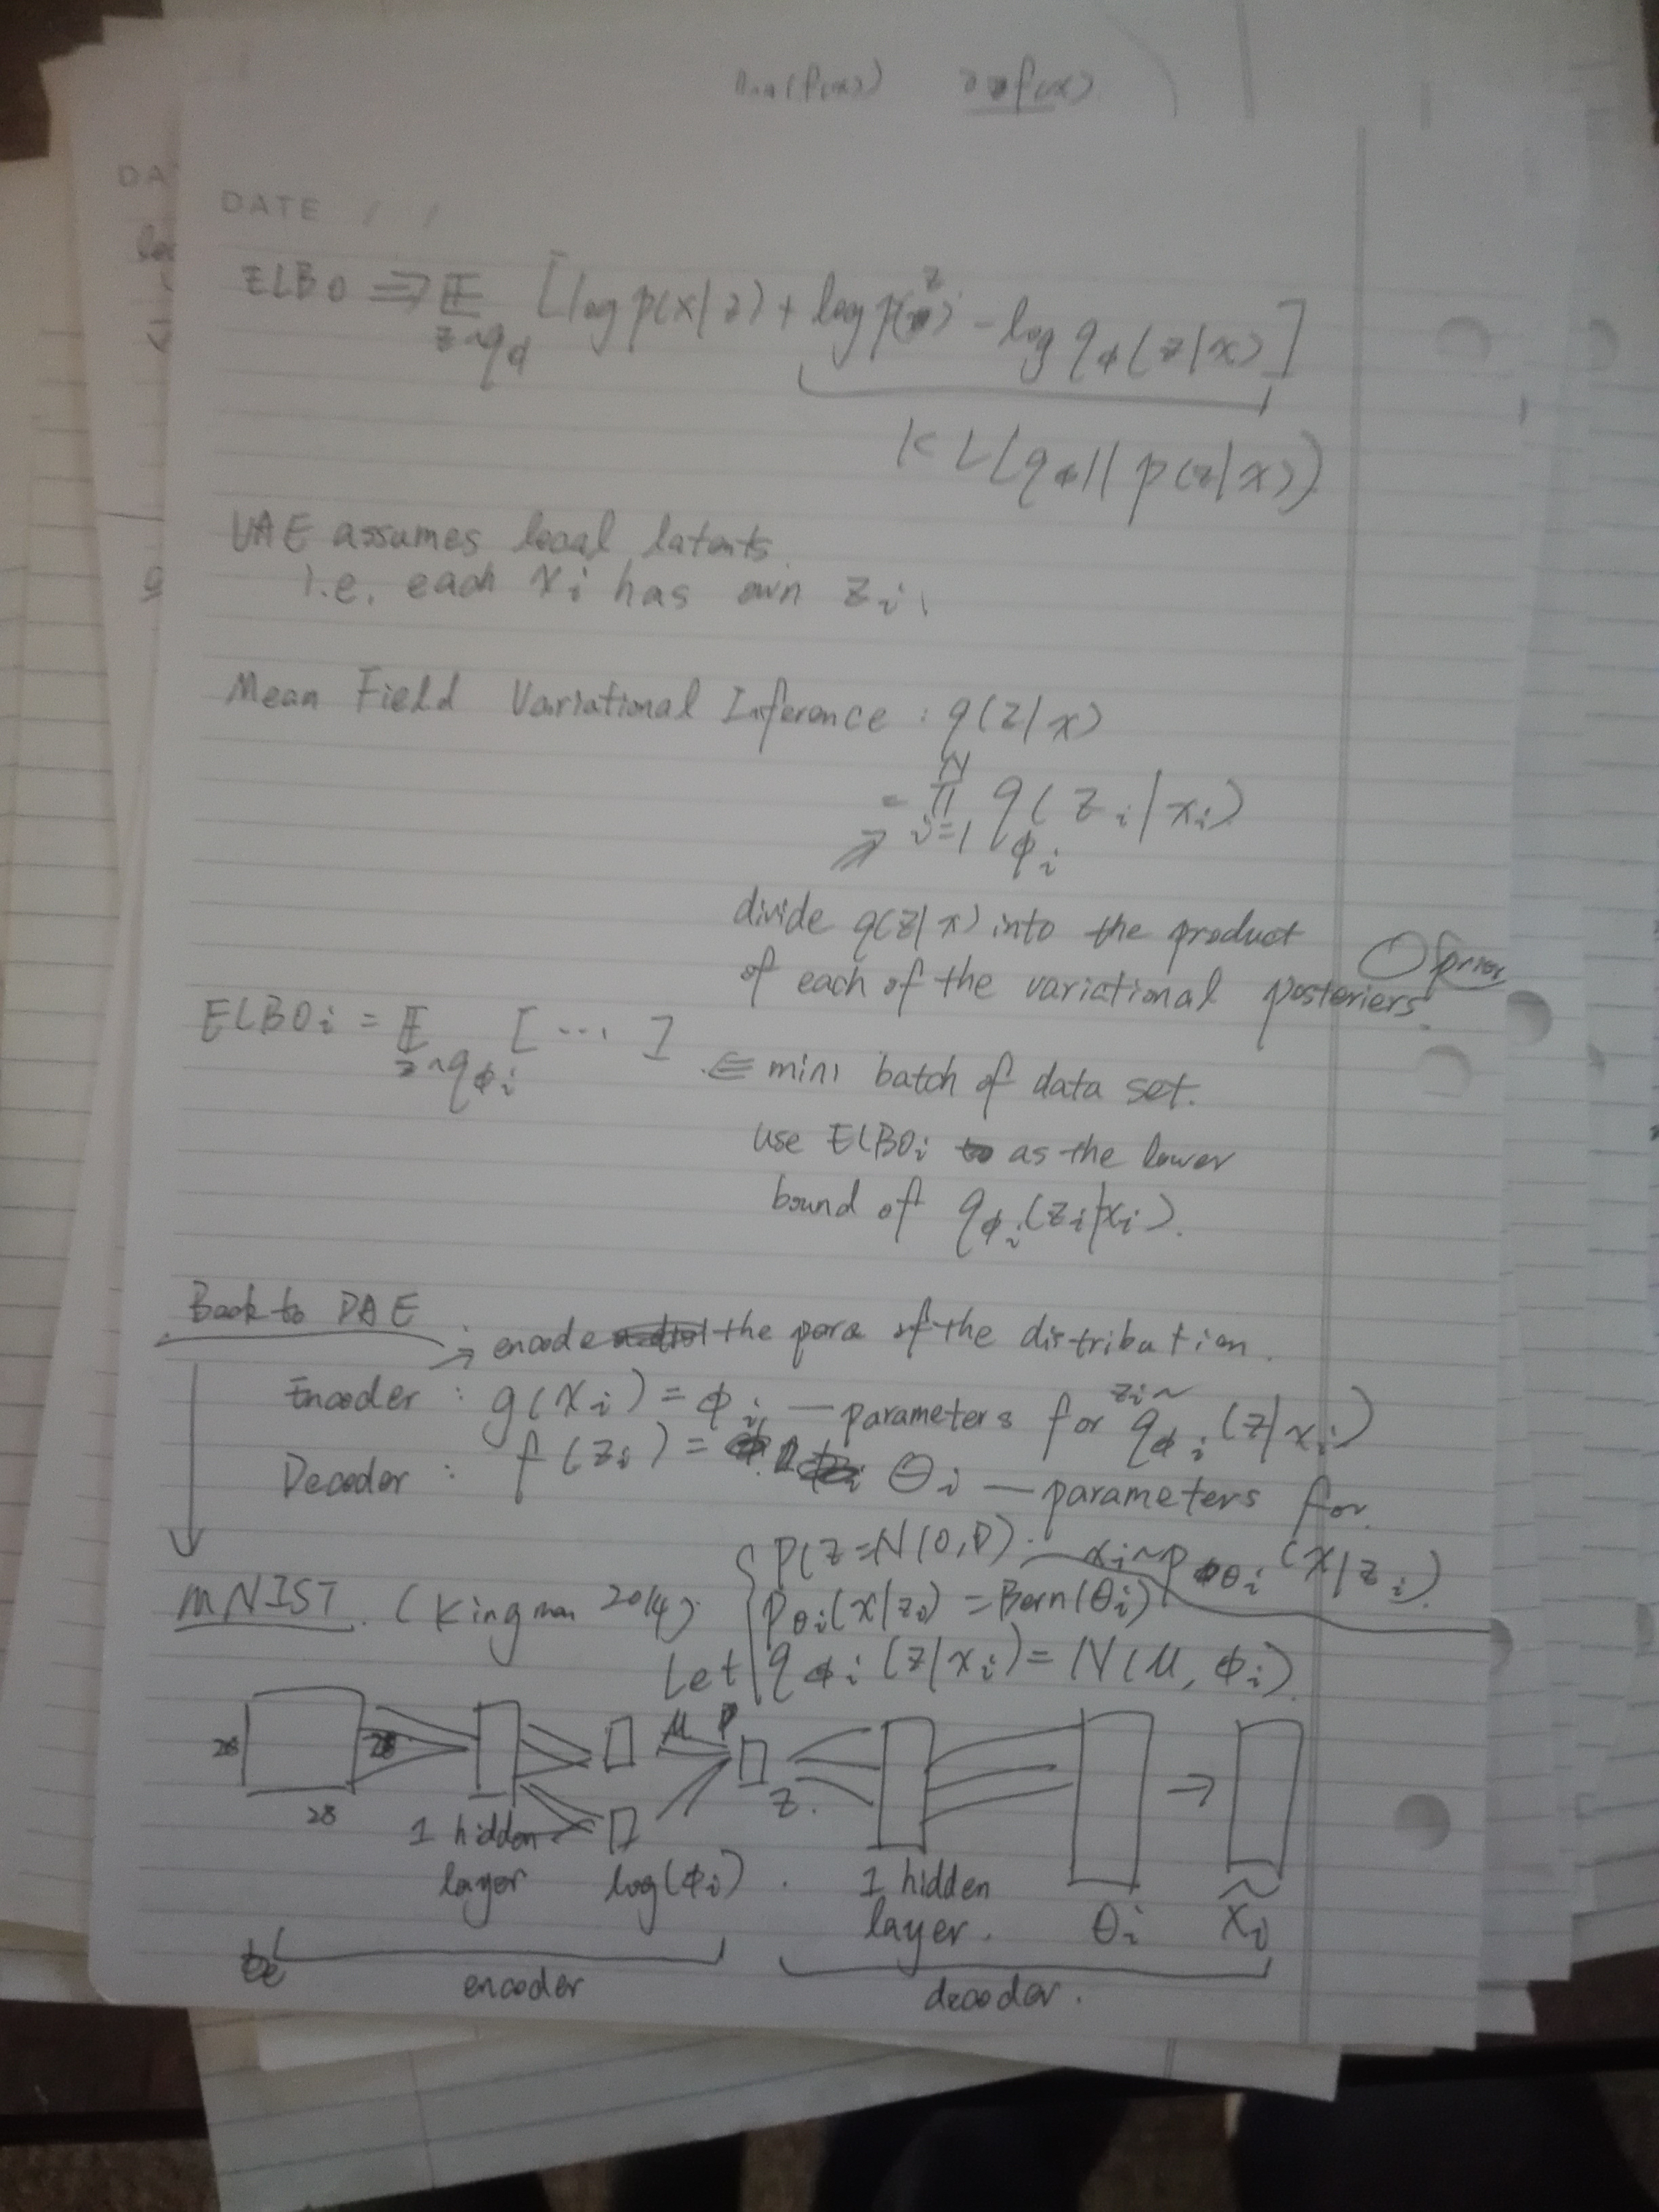 DATE / /
ELBO ⇒ 𝔼 z~qϕ [log p(x|z) + log p(z) - log qϕ(z|x)]
KL(qϕ || p(z|x))
VAE assumes local latents.
i.e. each xi has own zi.
Mean Field Variational Inference : q(z|x)
= N Π i=1 qϕi(zi|xi)
divide q(z|x) into the product
of each of the variational posteriers.
① prior
ELBOi = 𝔼 z~qϕi [ ... ] ⇐ mini batch of data set.
use ELBOi as the lower
bound of qϕi(zi|xi).
Back to DAE
→ encode the para of the distribution.
Encoder : g(xi) = ϕi — parameters for zi~ qϕi(z|xi)
Decoder : f(zi) = θi — parameters for
xi~pθi(x|zi)
p(z=N(0,I).
MNIST. (Kingman 2014). pθi(x|zi) = Bern(θi)
Let qϕi(z|xi) = N(μ, ϕi).
28 28 μ z.
28
1 hidden layer log(ϕi) . 1 hidden layer. θi x̃i
encoder decoder.